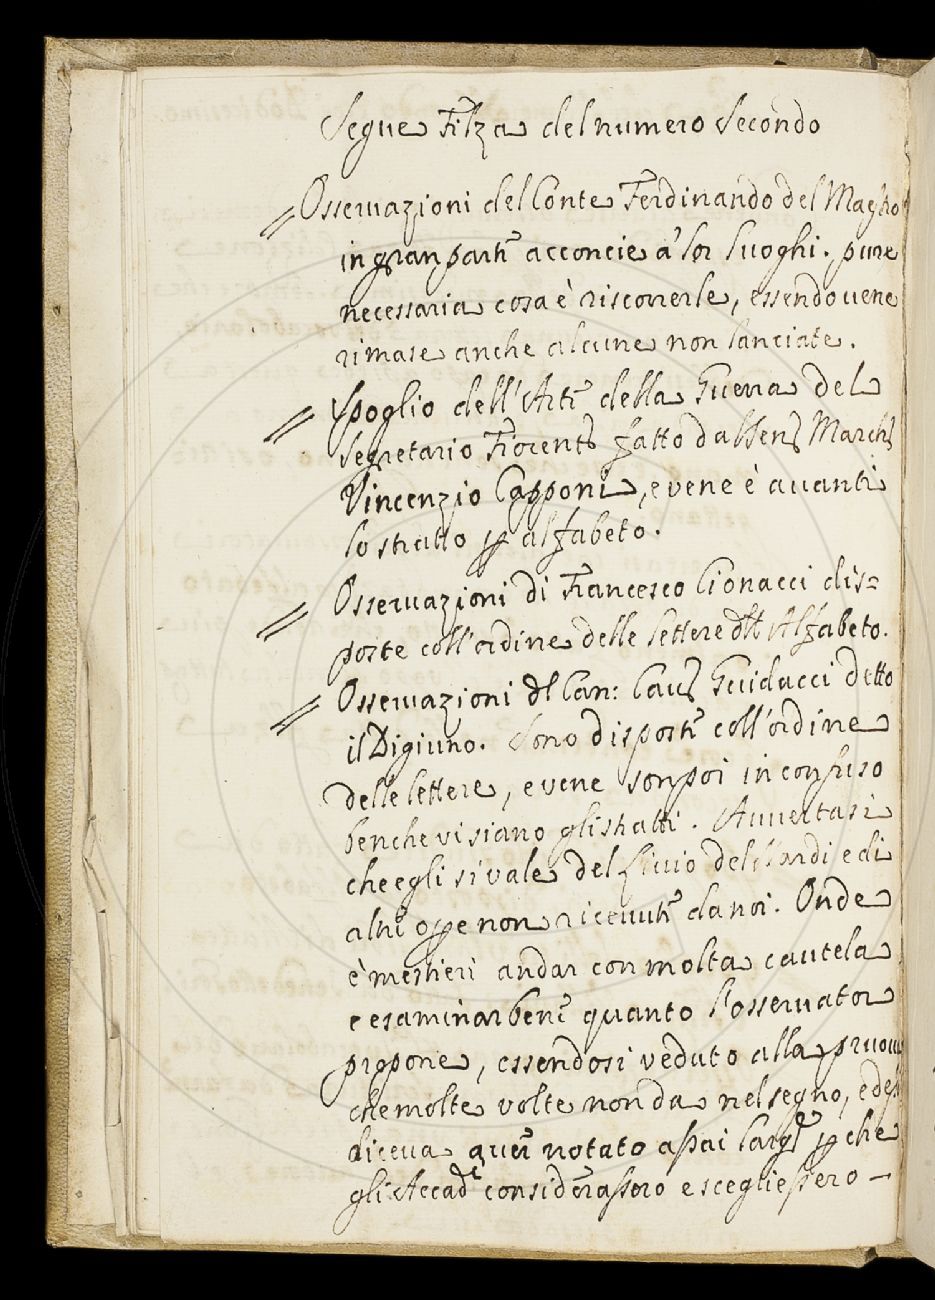 Segue Filza del numero Secondo
Osseruazioni del Conte Ferdinando del Maestro
in gran parti acconcie a' lor luoghi. pure
necessaria cosa è riscorrerle, essendouene
rimase anche alcune non lanciate.
Spoglio dell'Arte della Guerra del
Segretario Fiorent.o fatto dal Sen.r March.e
Vincenzio Capponi, e vene è auanti
lo stratto p alfabeto.
Osseruazioni di Francesco Cionacci dis=
poste coll'ordine delle lettere dll' Alfabeto.
Osseruazioni dl Can: Guiducci detto
il Digiuno. Sono disposti coll'ordine
delle lettere, e vene son poi in confuso
benche vi siano gli stratti. Auuertasi
che egli si vale del Liuio del Nardi e di
altre ope non riceuute da noi. Onde
è mestieri andar con molta cautela
e esaminar bene quanto l'osseruator
propone, essendosi veduto alla pruoua
che molte volte non da nel segno, ed
diceua auer notato assai larg.e p che
gli Accad.i considerassero e scegliessero —